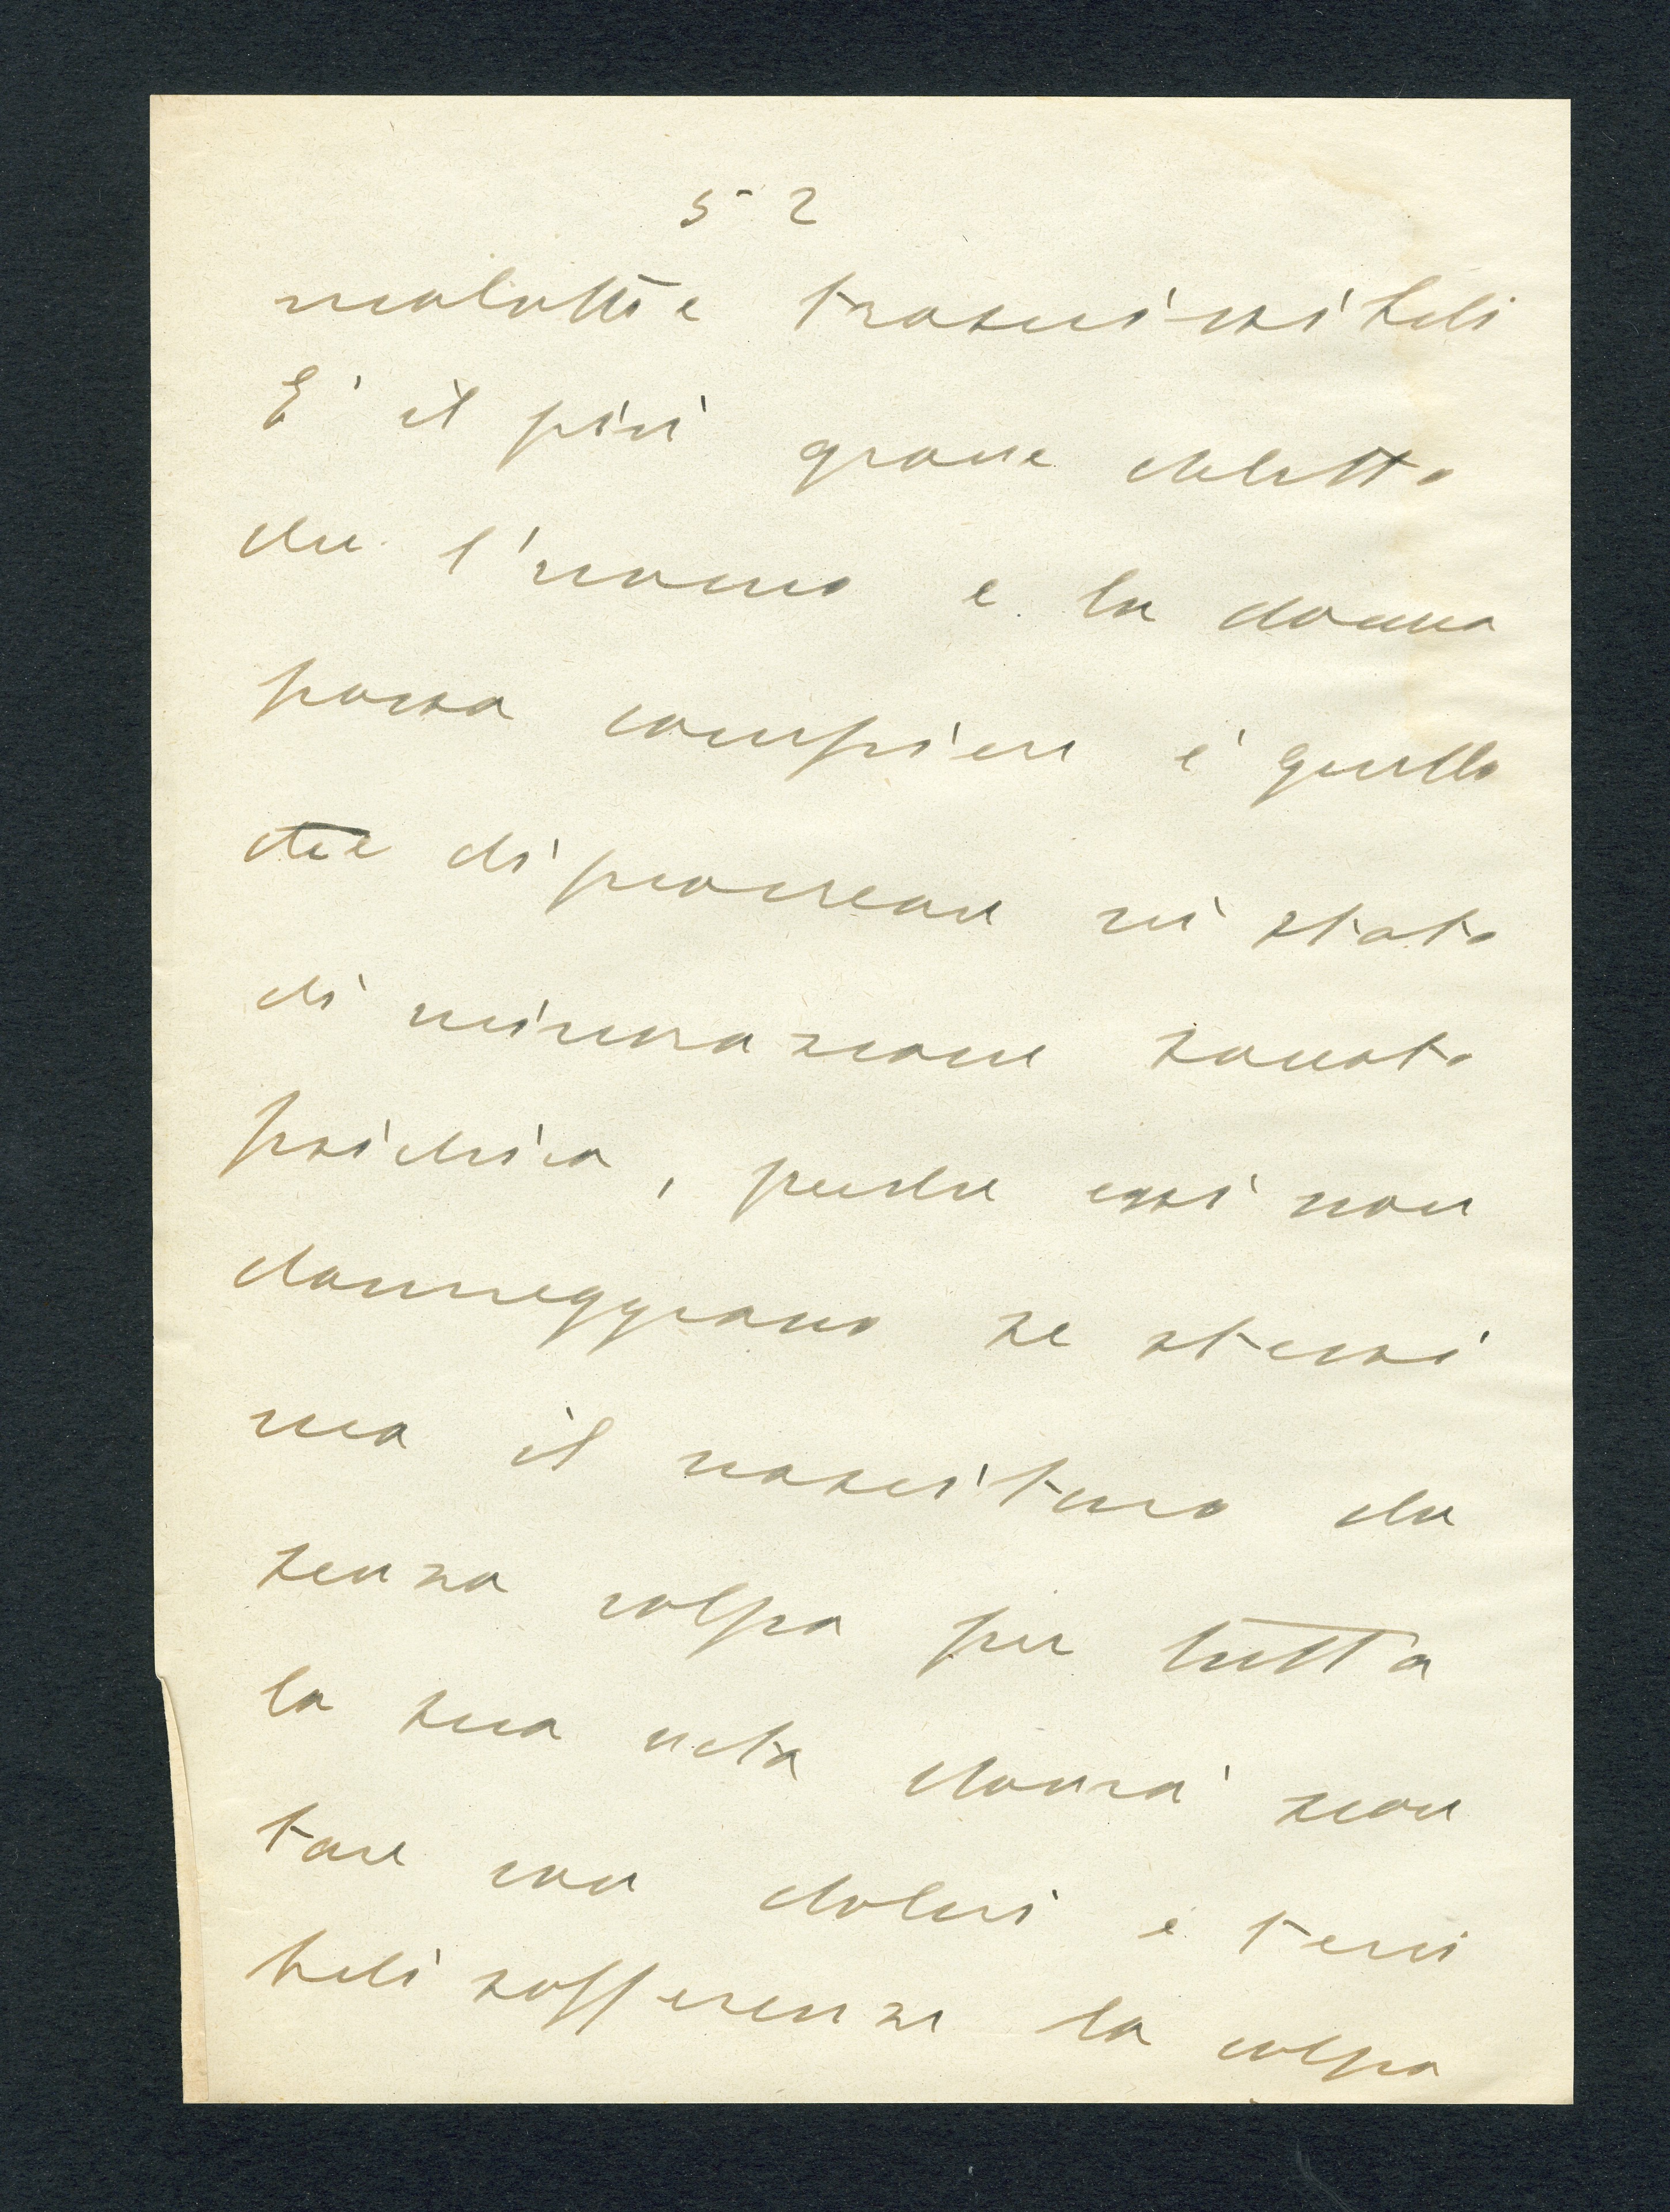 52
malattie trasmissibili
E' il più grave delitto
che l'uomo e la donna
possa compiere è quello
di procreare in stato
di minorazione somato
psichica, perche essi non
danneggiano se stessi
ma il nascituro che
senza colpa per tutta
la sua vita dovrà scon
tare con dolori e terri
bili sofferenze la colpa